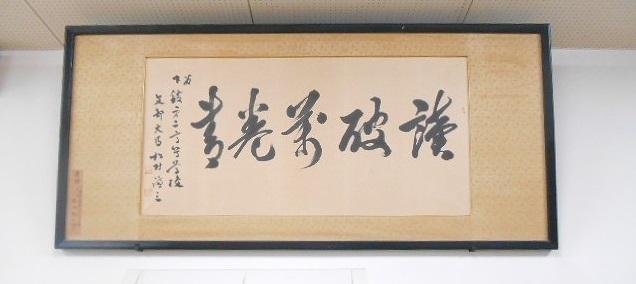 讀破萬巻書
第二高等学校
文部大臣 松村謙三